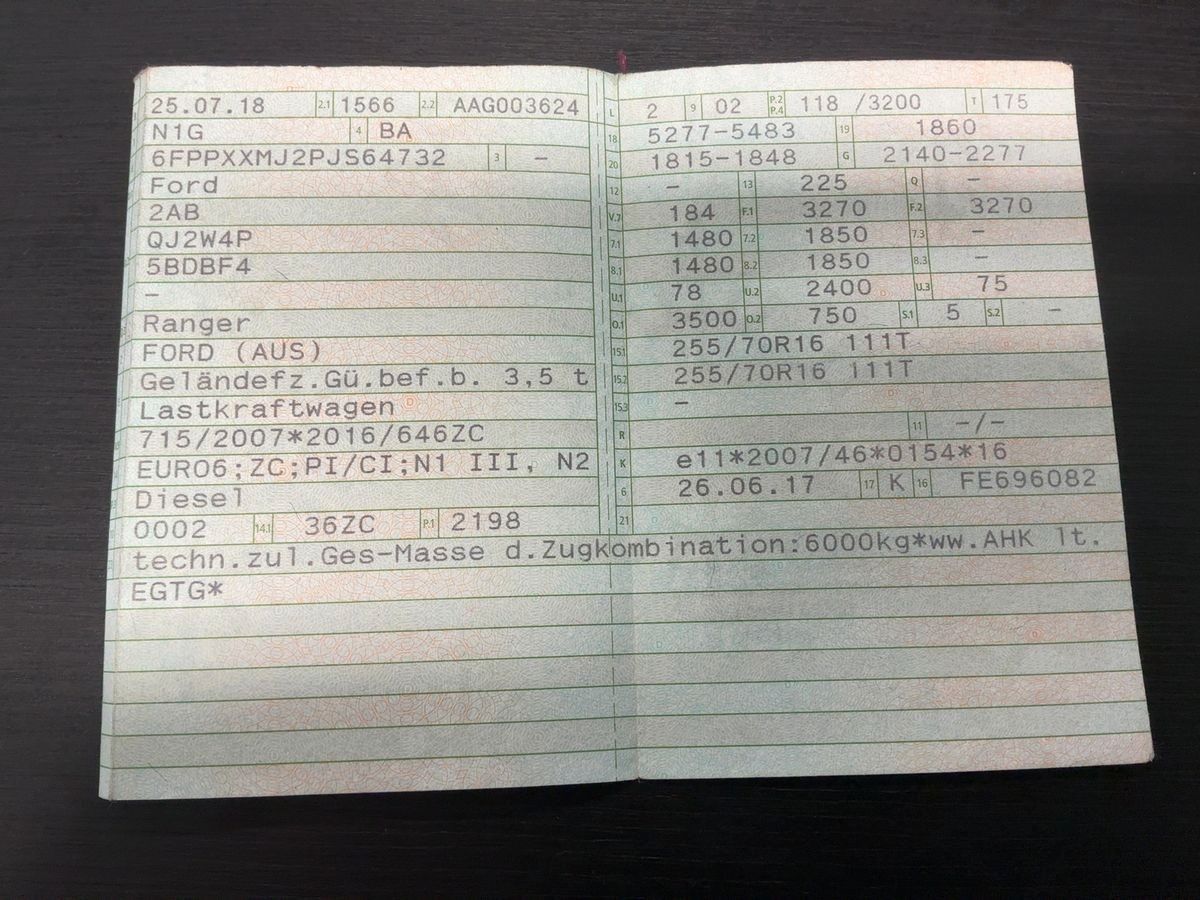 25.07.18 2.1 1566 2.2 AAG003624
N1G 4 BA
6FPPXXMJ2PJS64732 3 –
Ford
2AB
QJ2W4P
5BDBF4
–
Ranger
FORD (AUS)
Geländefz.Gü.bef.b. 3,5 t
Lastkraftwagen
715/2007*2016/646ZC
EURO6;ZC;PI/CI;N1 III, N2
Diesel
0002 14.1 36ZC P.1 2198
L 2 9 02 P.2 P.4 118 /3200 T 175
18 5277-5483 19 1860
20 1815-1848 G 2140-2277
12 – 13 225 Q –
V.7 184 F.1 3270 F.2 3270
7.1 1480 7.2 1850 7.3 –
8.1 1480 8.2 1850 8.3 –
U.1 78 U.2 2400 U.3 75
O.1 3500 O.2 750 S.1 5 S.2 –
15.1 255/70R16 111T
15.2 255/70R16 111T
15.3 –
R 11 –/–
K e11*2007/46*0154*16
6 26.06.17 17 K 16 FE696082
21
techn.zul.Ges-Masse d.Zugkombination:6000kg*ww.AHK lt.
EGTG*